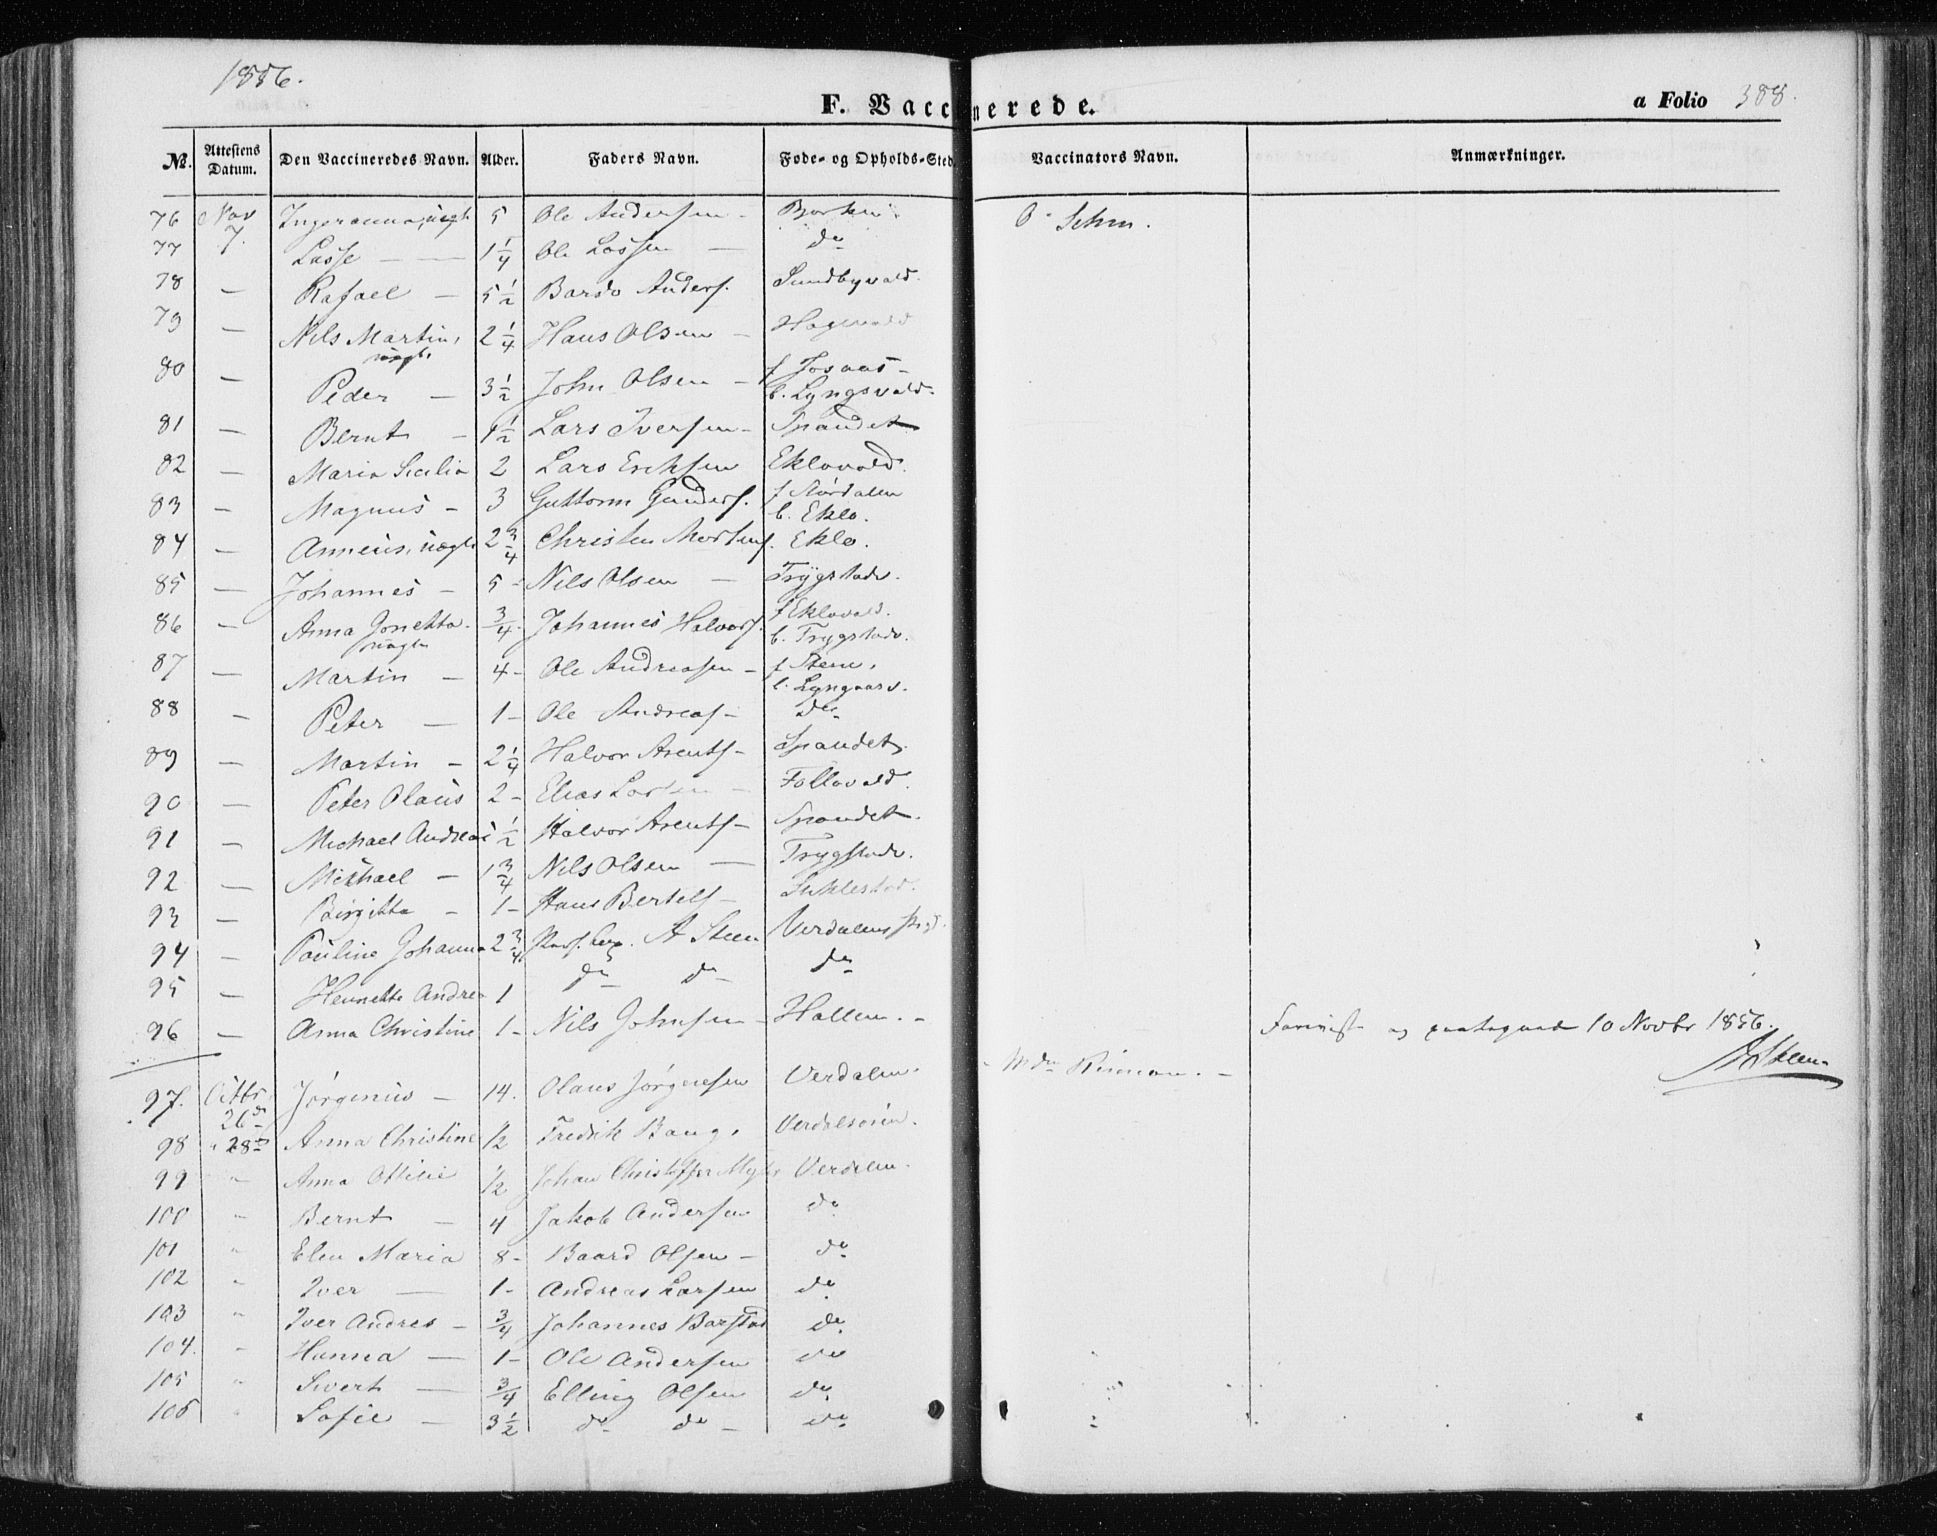 1856.
F. Vaccinerede.
a Folio 388.
No. Attestens Datum. Den Vaccineredes Navn. Alder. Faders Navn. Føde- og Opholds-Sted. Vaccinators Navn. Anmærkninger.
76 Nov 7. Ingeranna, uægte 5 Ole Andersen -
77 Lasse - 1 1/4 Ole Lassen - do
78 - Rafael - 5 1/2 Bardo Anders. Sundbyvald.
79 - Nils Martin, uægte 2 1/4 Hans Olsen -
80 - Peder - 3 1/2 John Olsen - f Josaas - b. Lyngsvald.
81 - Bernt - 1 1/2 Lars Iversen - Spandet
82 - Maria Sicilia 2 Lars Ericksen Eklovald.
83 - Magnus - 3 Guttorm Gunders. f Stördalen b. Eklo.
84 - Anneus, uægte 2 3/4 Christen Mortens. Eklo.
85 - Johannes - 5 - Nils Olsen - Trygstade.
86 - Anna Jonetta. uægte 3/4 - Johannes Halvors. f Eklovald. b. Trygstade.
87 - Martin - 4 - Ole Andreasen - f Steen. b. Lyngaars.
88 - Peter - 1 - Ole Andreas - do
89 - Martin - 2 1/4 Halvor Arents - Spandet.
90 - Peter Olaus 2 - Elias Larsen - Follovald.
91 - Michael Andreas 1/2 Halvor Arents - Spandet.
92 - Michael - 1 3/4 Nils Olsen - Trygstade.
93 - Birgitta - 1 - Hans Bertels -
94 - Pauline Johanna 2 3/4 A Steen
95 - Hennette Andrea 1 do do do
96 - Anna Christine 1 - Nils Johnsen - Hallem. -
og 10 Novbr 1856.
A Steen
97. Octbr 26de Jørginius - 14. Olaus Jørgensen Verdalen.
98 " 28de Anna Christine 1/2 Fredrik Baug. Verdalsøren.
99 " Anna Ottilie 1/2 Johan Christoffer Verdalen.
100 " Bernt - 4 Jakob Andersen do
101 " Elen Maria 8 - Baard Olsen - do
102 " Iver - 1 - Andreas Larsen do
103 " Iver Andres - 3/4 Johannes Barstad do
104. " Hanna - 1 - Ole Andersen do
105 " Sivert - 3/4 Elling Olsen do
106 " Sofie - 3 1/2 do do - do